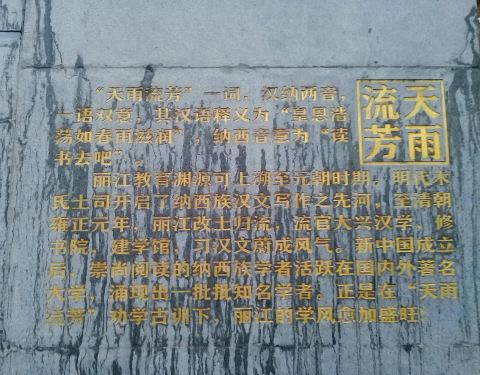 天雨
流芳
“天雨流芳”一词，汉纳两音，
一语双意，其汉语释义为“皇恩浩
荡如春雨滋润”，纳西音意为“读
书去吧”。
丽江教育渊源可上溯至元朝时期，明代木
氏土司开启了纳西族汉文写作之先河，至清朝
雍正元年，丽江改土归流，流官大兴汉学，修
书院，建学馆，习汉文蔚成风气。新中国成立
后，崇尚阅读的纳西族学者活跃在国内外著名
大学，涌现出一批批知名学者。正是在“天雨
流芳”劝学古训下，丽江的学风愈加盛旺!